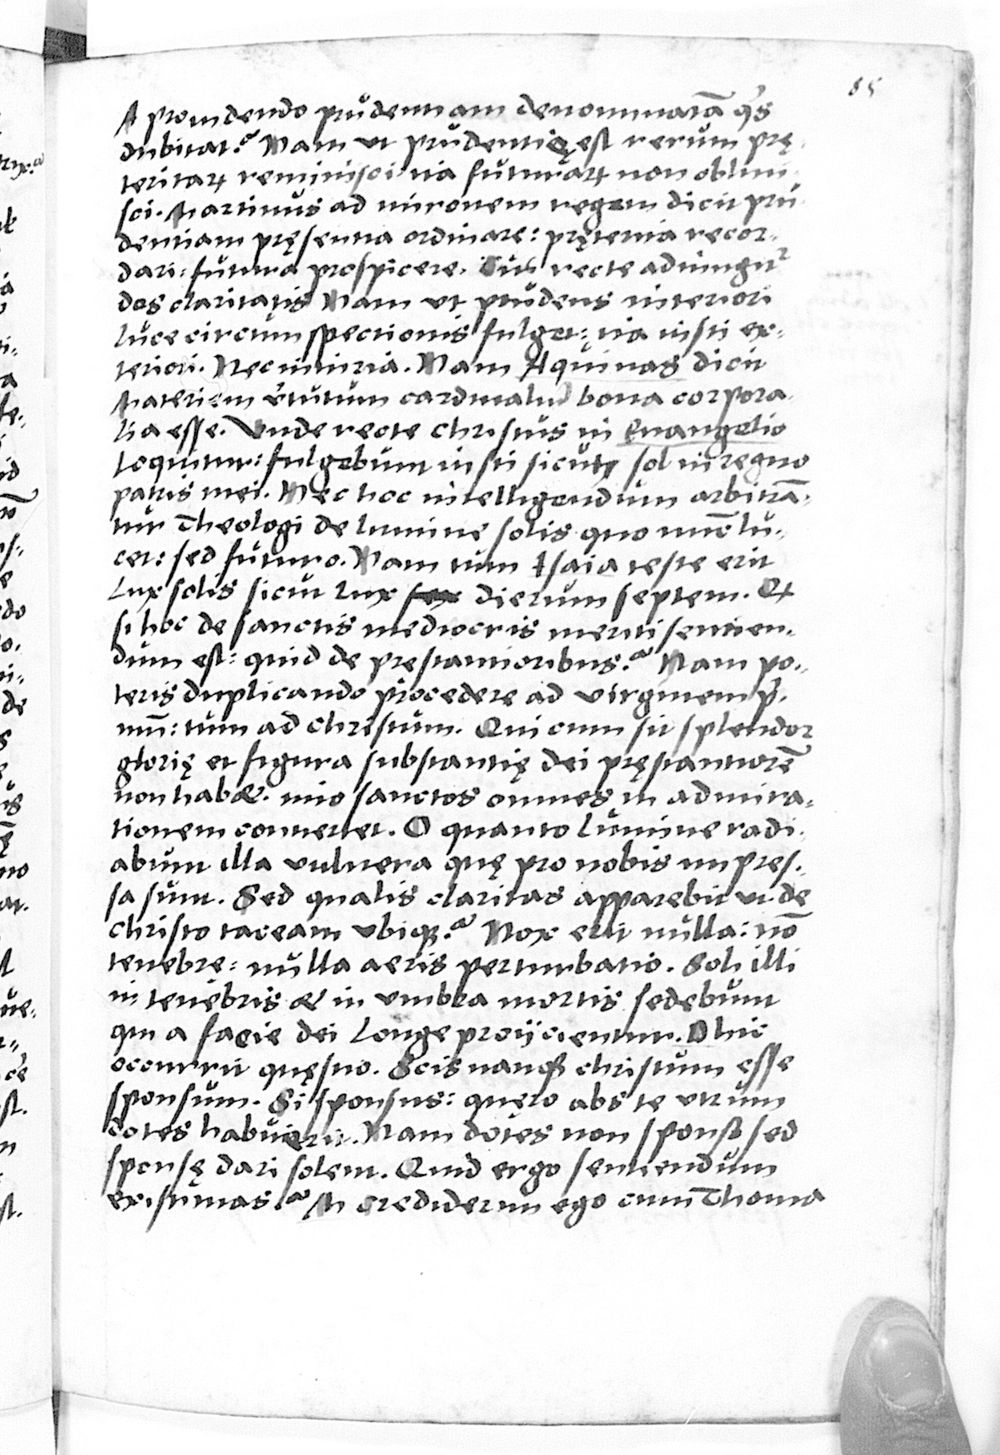 85
A prouidendo prudentiam denominatā q̄s
dubitat? Nam ut prudentię est rerum prę-
teritarꝝ reminisci ita futurarꝝ non obliui-
sci. Martinus ad mironem regem dicit pru-
dentiam pręsentia ordinare: pręterita recor-
dari: futura prospicere. Cui recte adiungit᷑
dos claritatis Nam ut prudens interiori
luce circumspectionis fulget: ita iusti ex-
teriori. Nec iniuria. Nam Aquinas dicit
Materiem uirtutum cardinaliū bona corpora-
lia esse. Vnde recte christus in Euangelio
loquitur: fulgebunt iusti sicut sol in regno
patris mei. Nec hoc intelligendum arbitrā-
tur Theologi de lumine solis quo nūc lu-
cet: sed futuro. Nam tum Isaia teste erit
lux solis sicut lux dierum septem. Et
si hoc de sanctis mediocris meriti sentien-
dum est: quid de prestantioribus? Nam po-
teris duplicando procedere ad virginem p̄-
mū: tum ad christum. Qui cum sit splendor
glorię et figura substantię dei pręstantiorē
non habet. imo sanctos omnes in admira-
tionem conuertet. O quanto lumine radi-
abunt illa vulnera quę pro nobis impres-
sa sunt. Sed qualis claritas apparebit ut de
christo taceam vbiqꝫ? Nox erit nulla: nō
tenebre: nulla aeris perturbatio. Soli illi
in tenebris et in vmbra mortis sedebunt
qui a facie dei longe proijcientur. Hic
occurrit quęstio. Scis nanqꝫ christum esse
sponsum. Si sponsus: quero abs te vtrum
dotes habuerit. Nam dotes non sponso sed
sponsę dari solent. Quid ergo sentiendum
existimas? At crediderim ego cum Thoma